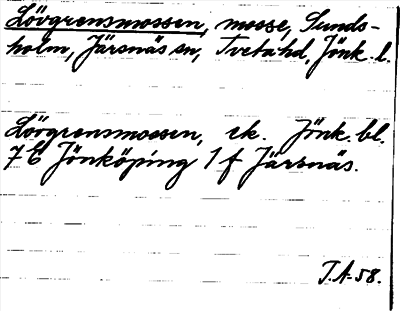 Lövgrensmossen, mosse, Sunds-
holm, Järsnäs sn, Tveta hd, Jönk. l.
Lövgrensmossen, ek. Jönk. bl.
7E Jönköping 1 f Järsnäs.
J.A-58.